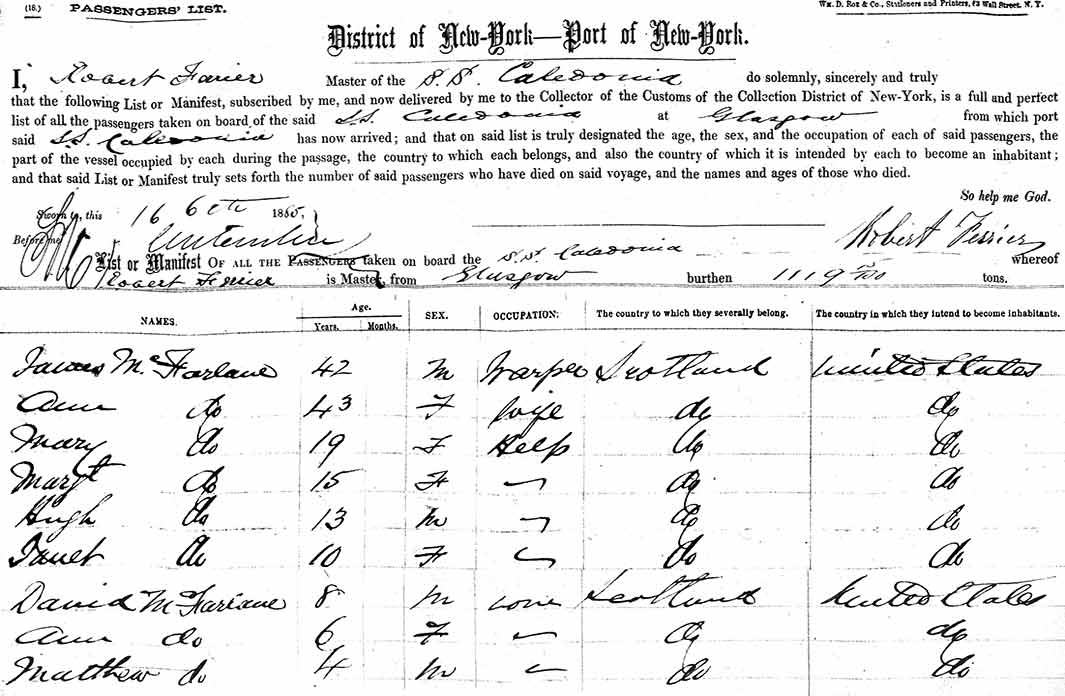 (18.) PASSENGERS' LIST. WM. D. ROE & CO., Stationers and Printers, 63 Wall Street, N. Y.
District of New-York—Port of New-York.
I, Robert Farier Master of the S.S. Caledonia do solemnly, sincerely and truly
that the following List or Manifest, subscribed by me, and now delivered by me to the Collector of the Customs of the Collection District of New-York, is a full and perfect
list of all the passengers taken on board of the said S.S. Caledonia at Glasgow from which port
said S.S. Caledonia has now arrived; and that on said list is truly designated the age, the sex, and the occupation of each of said passengers, the
part of the vessel occupied by each during the passage, the country to which each belongs, and also the country of which it is intended by each to become an inhabitant;
and that said List or Manifest truly sets forth the number of said passengers who have died on said voyage, and the names and ages of those who died.
So help me God.
Sworn to, this 16 186
Before me Robert Ferrier
List or Manifest OF ALL THE PASSENGERS taken on board the S.S. Caledonia whereof
Robert Ferrier is Master, from Glasgow burthen 1119 tons.
NAMES. Age. SEX. OCCUPATION. The country to which they severally belong. The country in which they intend to become inhabitants.
Years. Months.
James McFarlane 42 M Warper Scotland United States
Ann do 43 F Wife do do
Mary do 19 F Help do do
Margt do 15 F do do
Hugh do 13 M do do
Janet do 10 F do do
David McFarlane 8 M Scotland United States
Ann do 6 F do do
Matthew do 4 M do do